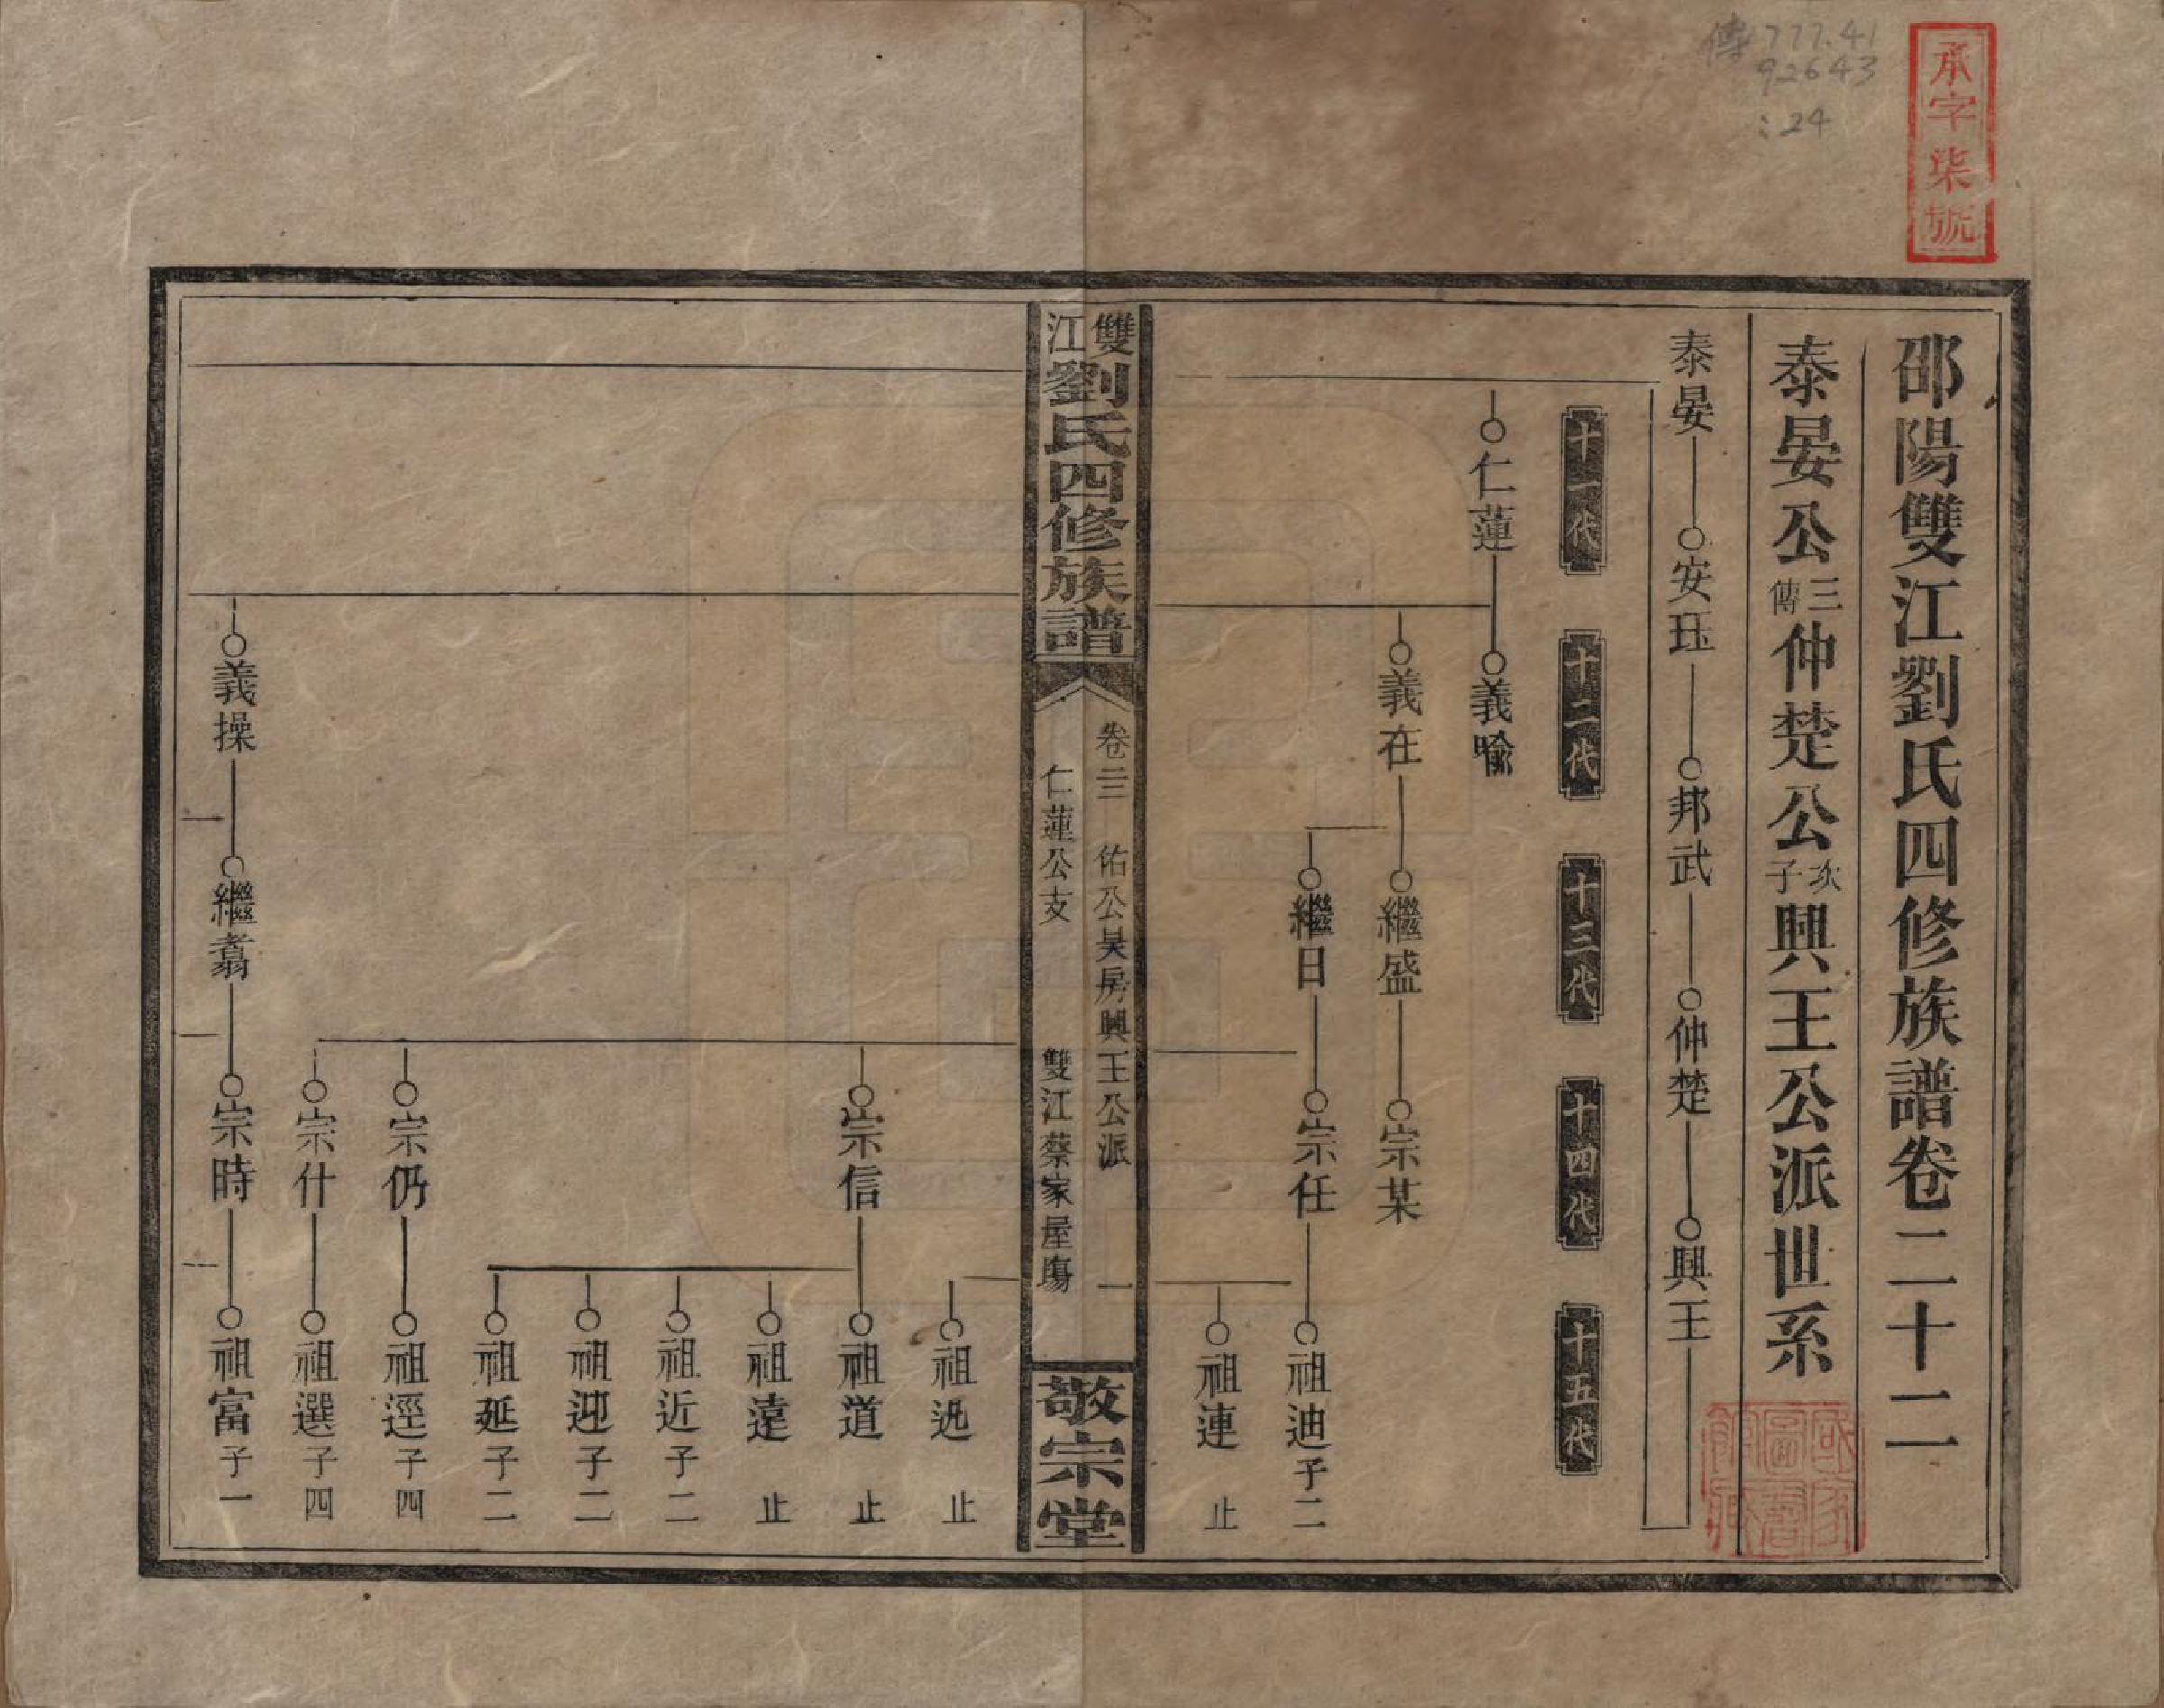 承字柒號
傳777.41
92643
:24
邵陽雙江劉氏四修族譜卷二十二
泰晏公三傳仲楚公次子興王公派世系
泰晏 安珏 邦武 仲楚 興王
十一代 十二代 十三代 十四代 十五代
仁蓮 義喻
義在 繼盛 宗某
繼日 宗任 祖迪 子二
祖連 止
雙江劉氏四修族譜
卷二二 佑公昊房興王公派 一
仁蓮公支 雙江蔡家屋塲
敬宗堂
祖迯 止
宗信 祖道 止
祖遠 止
祖近 子二
祖迎 子二
祖延 子二
宗仍 祖逕 子四
宗什 祖選 子四
義操 繼翥 宗時 祖富 子一
國家圖書館藏書